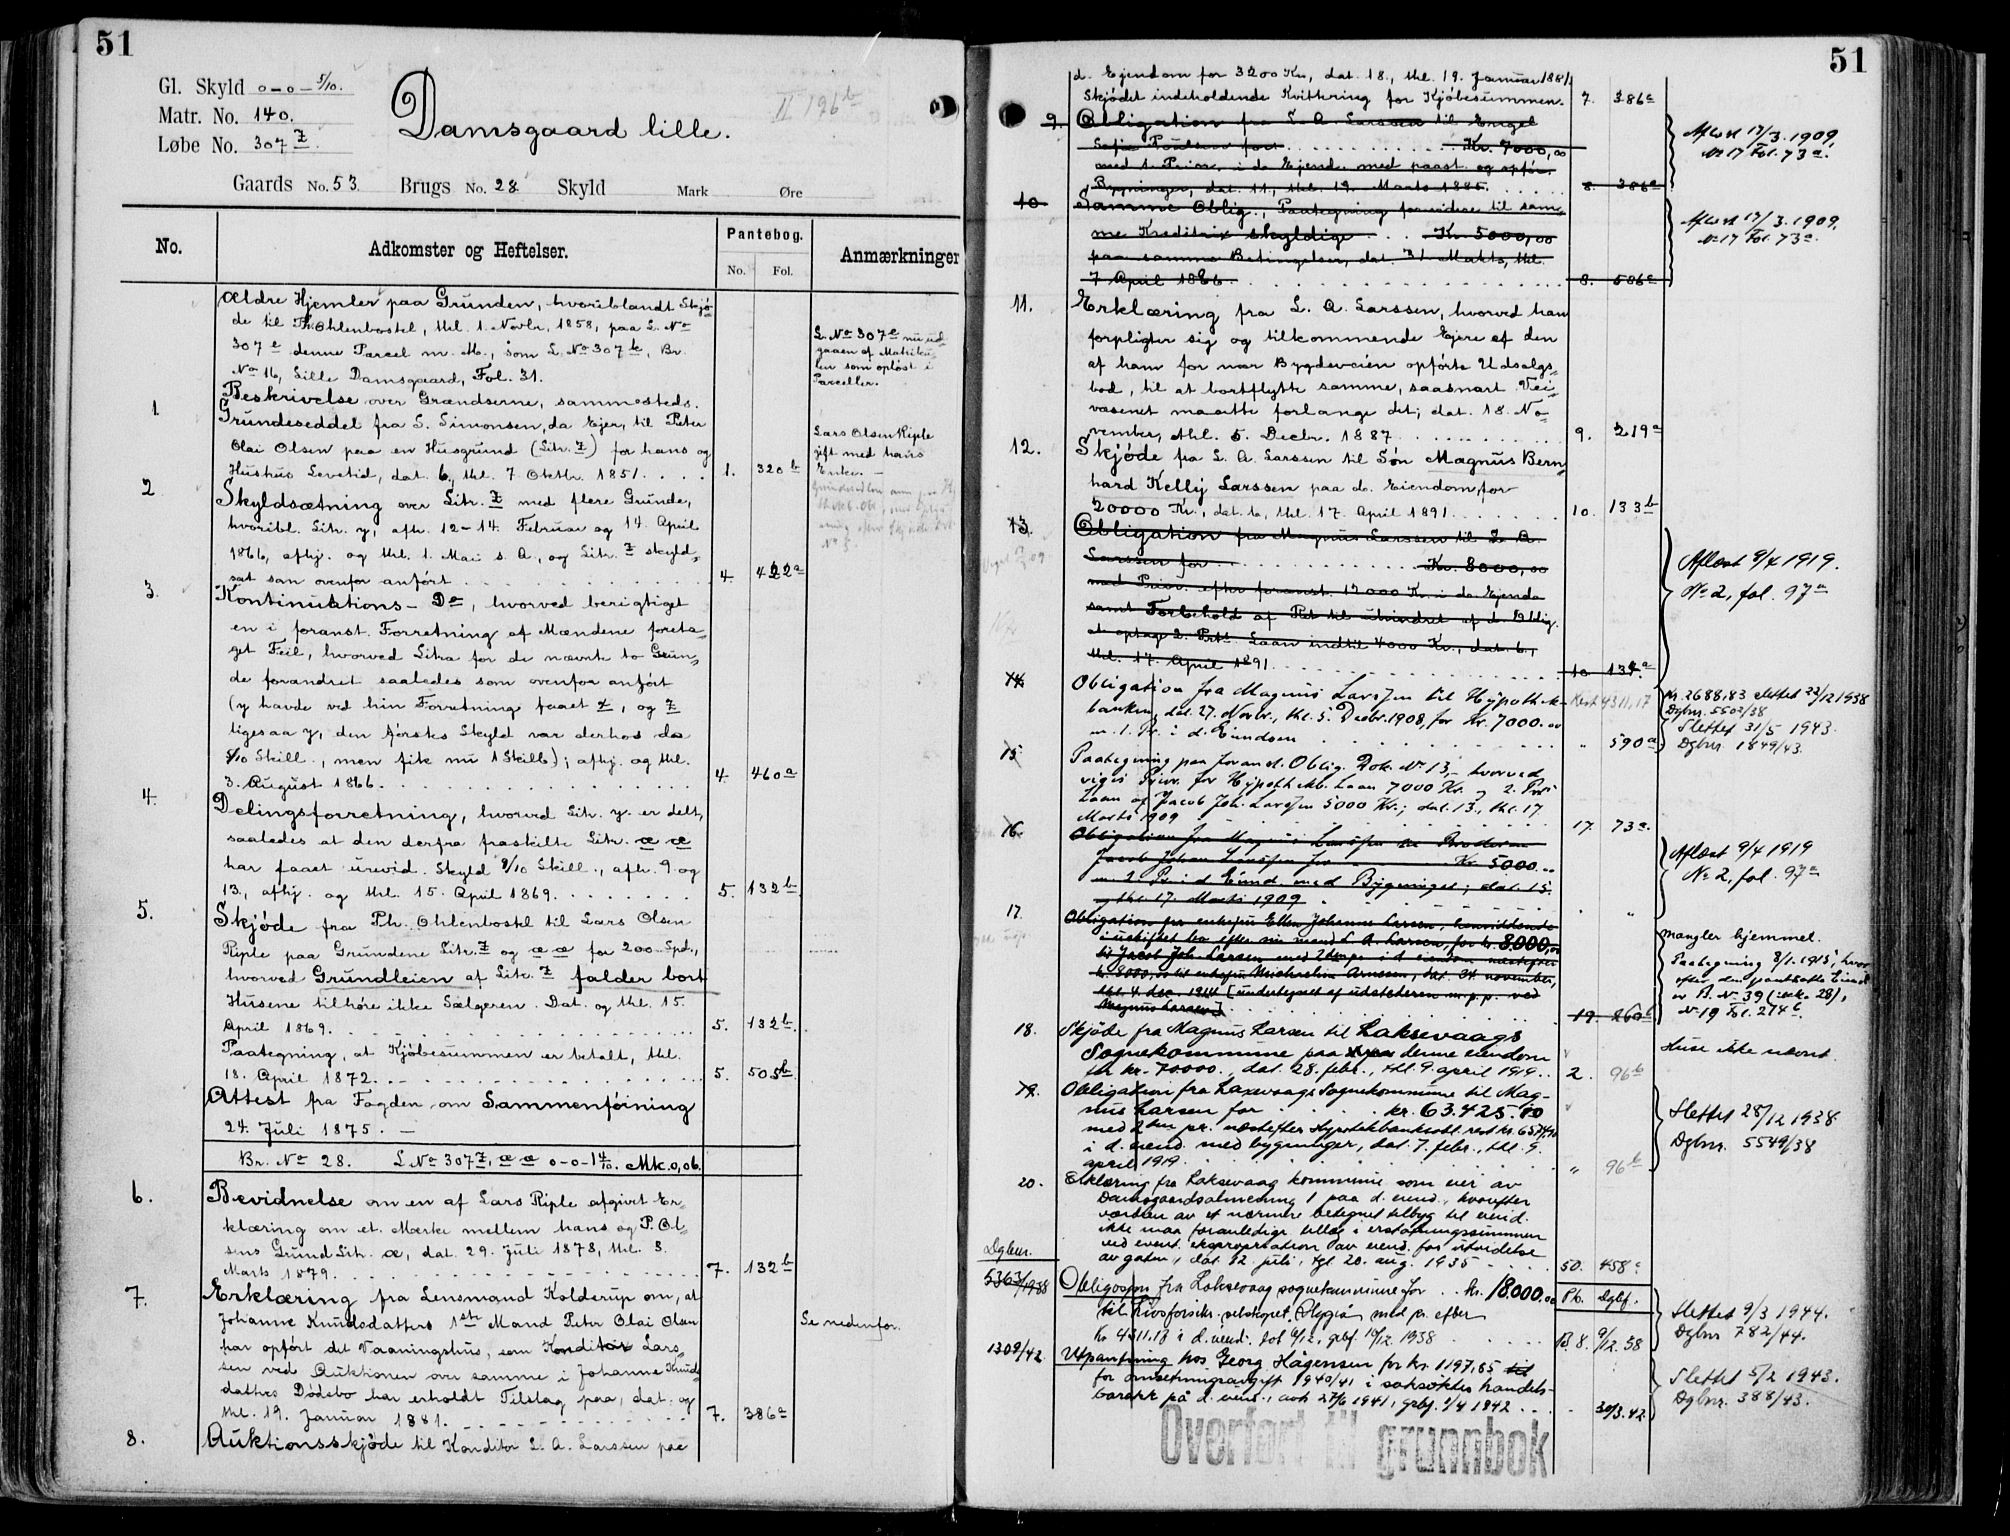 51
Gl. Skyld 0-0-5/10.
Matr. No. 140.
Løbe No. 307 Z
Damsgaard lille.
II 196 b
Gaards No. 53 Brugs No. 28 Skyld Mark Øre
No.
Adkomster og Heftelser.
Pantebog.
No. Fol.
Anmærkninger
Ældre Hjemler paa Grunden, hvoriblandt Skjö-
de til Ph. Ohlenbostel, thl. 1. Novbr. 1858, paa L. No
307 e denne Parcel m. M., som L. No 307 k, Br.
No 16, Lille Damsgaard, Fol. 31.
L. No 307 e nu ud-
gaaen af Matriku-
len som opløst i
Parceller.
Beskrivelse over Grændserne, sammesteds.
1. Grundeseddel fra S. Simonsen, da Ejer, til Peter
Olai Olsen paa en Husgrund (Litr. Z) for hans og
Hustrus Levetid, dat. 6, thl. 7 Oktbr. 1851. 1. 320 b
Lars Olsen Riple
gift med hans
Enke. —
2. Skyldsætning over Litr. Z med flere Grunde,
hvoribl. Litr. y, afh. 12-14. Februar og 14. April
1866, afhj. og thl. 1. Mai s. A., og Litr. Z skyld-
sat som ovenfor anført 4. 422 a
3. Kontinuations- Do, hvorved berigtiget
en i foranst. Forretning af Mændene foreta-
get Feil, hvorved Litra for de nævnte to Grun-
de forandret saaledes som ovenfor anført
(y havde ved hin Forretning faaet z, og z
ligesaa y, den førstes Skyld var derhos da
5/10 Skill., men fik nu 1 Skill); afhj. og thl.
3. August 1866. 4. 460 a
4. Delingsforretning, hvorved Litr. y er delt,
saaledes at den derfra fraskilte Litr. æ æ
har faaet urevid. Skyld 9/10 Skill., afh. 9 og
13., afhj. og thl. 15. April 1869. 5. 132 b
5. Skjöde fra Ph. Ohlenbostel til Lars Olsen
Riple paa Grundene Litr. Z og æ æ for 200 Spd.,
hvorved Grundleien af Litr. Z falder bort
Husene tilhøre ikke Sælgeren. Dat. og thl. 15.
April 1869. 5. 132 b
Paategning, at Kjöbesummen er betalt, thl.
18. April 1872. 5. 505 b
Attest fra Fogden om Sammenföining
24. Juli 1875. —
Br. No 28. L No 307 Z, æ æ 0-0-1 4/10. Mk. 0,06.
6. Bevidnelse om en af Lars Riple afgivet Er-
klæring om et. Mærke mellem hans og P. Ol-
sens Grund Litr. æ, dat. 29. Juli 1878, thl. 8.
Marts 1879. 7. 132 b
7. Erklæring fra Lensmand Kolderup om, at
Johanne Knudsdatters 1ste Mand Peter Olai Olsen
har opført det Vaaningshus, som Konditor Lars-
sen ved Auktionen over samme i Johanne Knuds-
datters Dødsbo har erholdt Tilslag paa, dat. og
thl. 19. Januar 1881. 7. 386 a
Se nedenfor.
8. Auktionsskjöde til Konditor L. A. Larssen paa
51
d. Ejendom for 3200 Kr., dat. 18., thl. 19. Januar 1881,
Skjödet indeholdende Kvittering for Kjöbesummen. 7. 386 a
9. Obligation fra L. A. Larssen til Engel
Sofie Poulsen for Kr. 7000,00
med 1. Prior. i de Ejend. med paast. og opfør.
Bygninger, dat. 11., thl. 19. Marts 1885. 8. 286 a
Aflæst 17/3. 1909,
No 17 Fol. 73 a.
10. Samme Oblig., Paategning forvidere til sam-
me Kreditrix skyldige Kr. 5000,00
paa samme Betingelser, dat. 31 Marts, thl.
7 April 1886. 8. 586 a
Aflæst 17/3. 1909,
No 17 Fol. 73 a.
11. Erklæring fra L. A. Larssen, hvorved han
forpligter sig og tilkommende Ejere af den
af ham for nær Bygdeveien opførte Udsalgs-
bod, til at bortflytte samme, saasnart Vei-
væsenet maatte forlange det; dat. 18. No-
vember, thl. 5. Decbr. 1887 9. 219 a
12. Skjöde fra L. A. Larssen til Søn Magnus Bern-
hard Kelly Larssen paa d. Eiendom, for
20000 Kr., dat. 6, thl. 17. April 1891. 10. 133 b
13. Obligation fra Magnus Larssen til L. A.
Larssen for Kr. 8000,00
med Prior. efter foranst. 12000 Kr. i de Ejende
samt Forbehold af Ret til uhindret af d. Oblig.
at optage 2. Prts. Laan indtil 4000 Kr., dat. 6.,
thl. 17. April 1891. 10. 134 a
Aflæst 9/4 1919.
No 2, fol. 97 a
14. Obligation fra Magnus Larssen til Hypothek-
banken, dat. 27. Novbr., thl. 5. Decbr. 1908, for Kr. 7000.00
m. 1. Pr. i d. Eiendom " 590 a
Rest 4311,17
Kr. 2688,83 slettet 22/12 1938
Dgbnr. 5502/38
Slettet 31/5 1943.
Dgbnr. 1849/43.
15. Paategning paa foranst. Oblig. Dok. No 13, - hvorved
viges Prior. for Hypothekb. Laan 7000 Kr. og 2. Prts
Laan af Jacob Joh. Larssen 5000 Kr.; dat. 13., thl. 17.
Marts 1909 17. 73 a.
16. Obligation fra Magnus Larssen til Broderen
Jacob Johan Larssen for Kr. 5000.00
m. 2. Pr. i d. Eiend. med Bygninger; dat. 15.
og thl. 17. Marts 1909 " "
Aflæst 9/4 1919
No 2, fol. 97 a
17. Obligation fra enkefru Ellen Johanne Larsen, hensiddende
i uskiftet bo efter sin mand L. A. Larsen, for kr. 8000,00
til Jacob Joh. Larssen med 2den pr. i d. eiendom næstefter
kr. 8000,00 til enkefru Michaeline Arnesen, dat. 24. november,
thl. 4. dec. 1914 (undertegnet af udstederen m. p. p. ved
Magnus Larsen). 19. 260 b
Mangler hjemmel.
Paategning 8/1. 1915, hvor-
efter den pantsatte Eiend.
er B. No 39 (ikke 28),
No 19 Fol. 274 b.
18. Skjøde fra Magnus Larsen til Laksevaags
Sognekommune paa denne eiendom
for kr. 70000., dat. 28. febr., thl. 9. april 1919. 2. 96 b
Huse ikke nævnt.
19. Obligation fra Laxevaags Sognekommune til Mag-
nus Larsen for kr. 63.425.10
med 2den pr. næstefter Hypotekbanksobl. rest kr. 6574,90
i d. eiend. med bygninger, dat. 7. febr., thl. 9.
april 1919. " 96 b
Slettet 28/12 1938.
Dgbnr. 5549/38
20. Erklæring fra Laksevaag kommune som eier av
Damsgaardsalmenning 1 paa d. eiend., hvorefter
værdien av et nærmere betegnet tilbyg til eiend.
ikke maa foranledige tillæg i erstatningssummen
ved event. ekspropriation av eiend. for utvidelse
av gaten, dat. 12 juli, tgl. 20. aug. 1935 50. 458 a
Dgbnr.
5363/1938 Obligasjon fra Laksevaag sognekommune for kr. 18.000,00 Pb. Dgbf.
til Livsforsikr. selskapet Olygia med pr. efter
Kr. 4311.17 i d. eiend. dat. 6/12, grbf. 10/12 1938 B. 8. 9/12.38
Slettet 9/3 1944.
Dgbnr 782/44.
1309/42 Utpantning hos Georg Hågenssen for kr. 1197,65
for omsetningsavgift 1940/41 i saksøktes handels-
barakk på d. eiend., avh. 27/6 1941, grbf. 1/4 1942 - 30/3.42
Slettet 5/2 1943.
Dgbnr. 388/43.
Overført til grunnbok